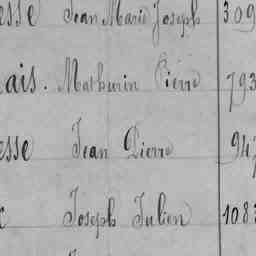 esse Jean Marie Joseph 309
ais. Mathurin Pierre 793
esse Jean Pierre 947
Joseph Julien 1083